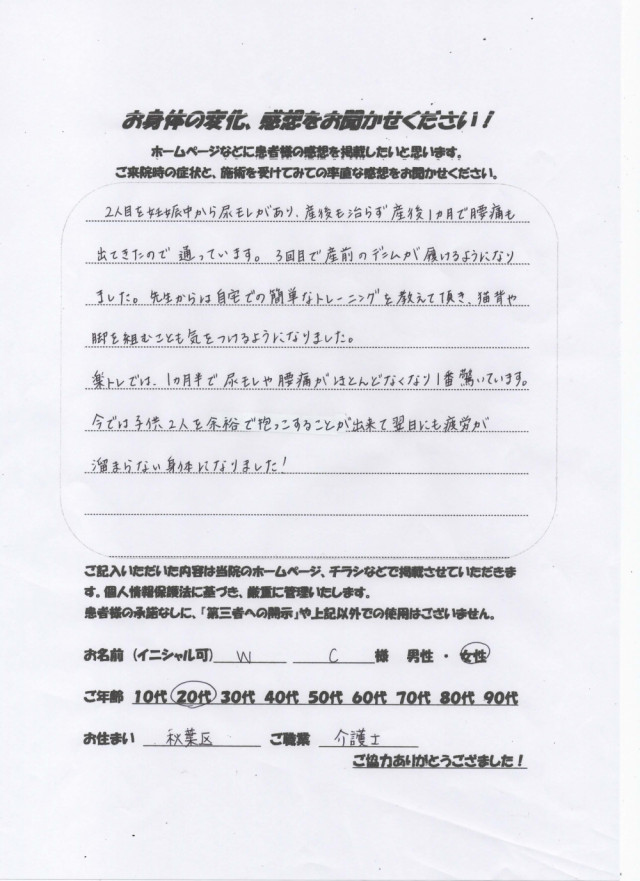 お身体の変化、感想をお聞かせください！
ホームページなどに患者様の感想を掲載したいと思います。
ご来院時の症状と、施術を受けてみての率直な感想をお聞かせください。
2人目を妊娠中から尿モレがあり、産後も治らず産後1ヵ月で腰痛も
出てきたので通っています。3回目で産前のデニムが履けるようになり
ました。先生からは自宅での簡単なトレーニングを教えて頂き、猫背や
脚を組むことも気をつけるようになりました。
楽トレでは、1ヵ月半で尿モレや腰痛がほとんどなくなり1番驚いています。
今では子供2人を余裕で抱っこすることが出来て翌日にも疲労が
溜まらない身体になりました！
ご記入いただいた内容は当院のホームページ、チラシなどで掲載させていただきま
す。個人情報保護法に基づき、厳重に管理いたします。
患者様の承諾なしに、「第三者への開示」や上記以外での使用はございません。
お名前（イニシャル可） W C 様 男性・女性
ご年齢 10代 20代 30代 40代 50代 60代 70代 80代 90代
お住まい 秋葉区 ご職業 介護士
ご協力ありがとうござました！